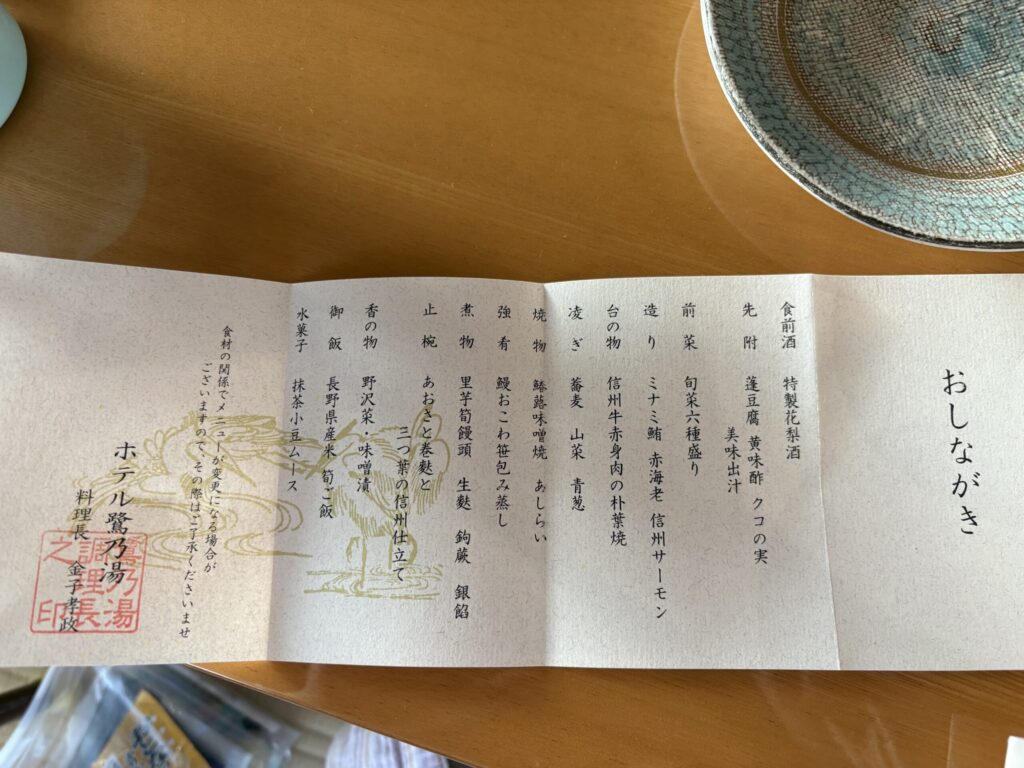 おしながき
食前酒 特製花梨酒
先附 蓬豆腐 黄味酢 クコの実
美味出汁
前菜 旬菜六種盛り
造り ミナミ鮪 赤海老 信州サーモン
台の物 信州牛赤身肉の朴葉焼
凌ぎ 蕎麦 山菜 青葱
焼物 鰆蕗味噌焼 あしらい
強肴 鰻おこわ笹包み蒸し
煮物 里芋筍饅頭 生麩 鉤蕨 銀餡
止椀 あおさと巻麩と
三つ葉の信州仕立て
香の物 野沢菜・味噌漬
御飯 長野県産米 筍ご飯
水菓子 抹茶小豆ムース
食材の関係でメニューが変更になる場合が
ございますので、その際はご了承くださいませ
ホテル鷺乃湯
料理長 金子孝政
鷺乃湯
調理長
之印